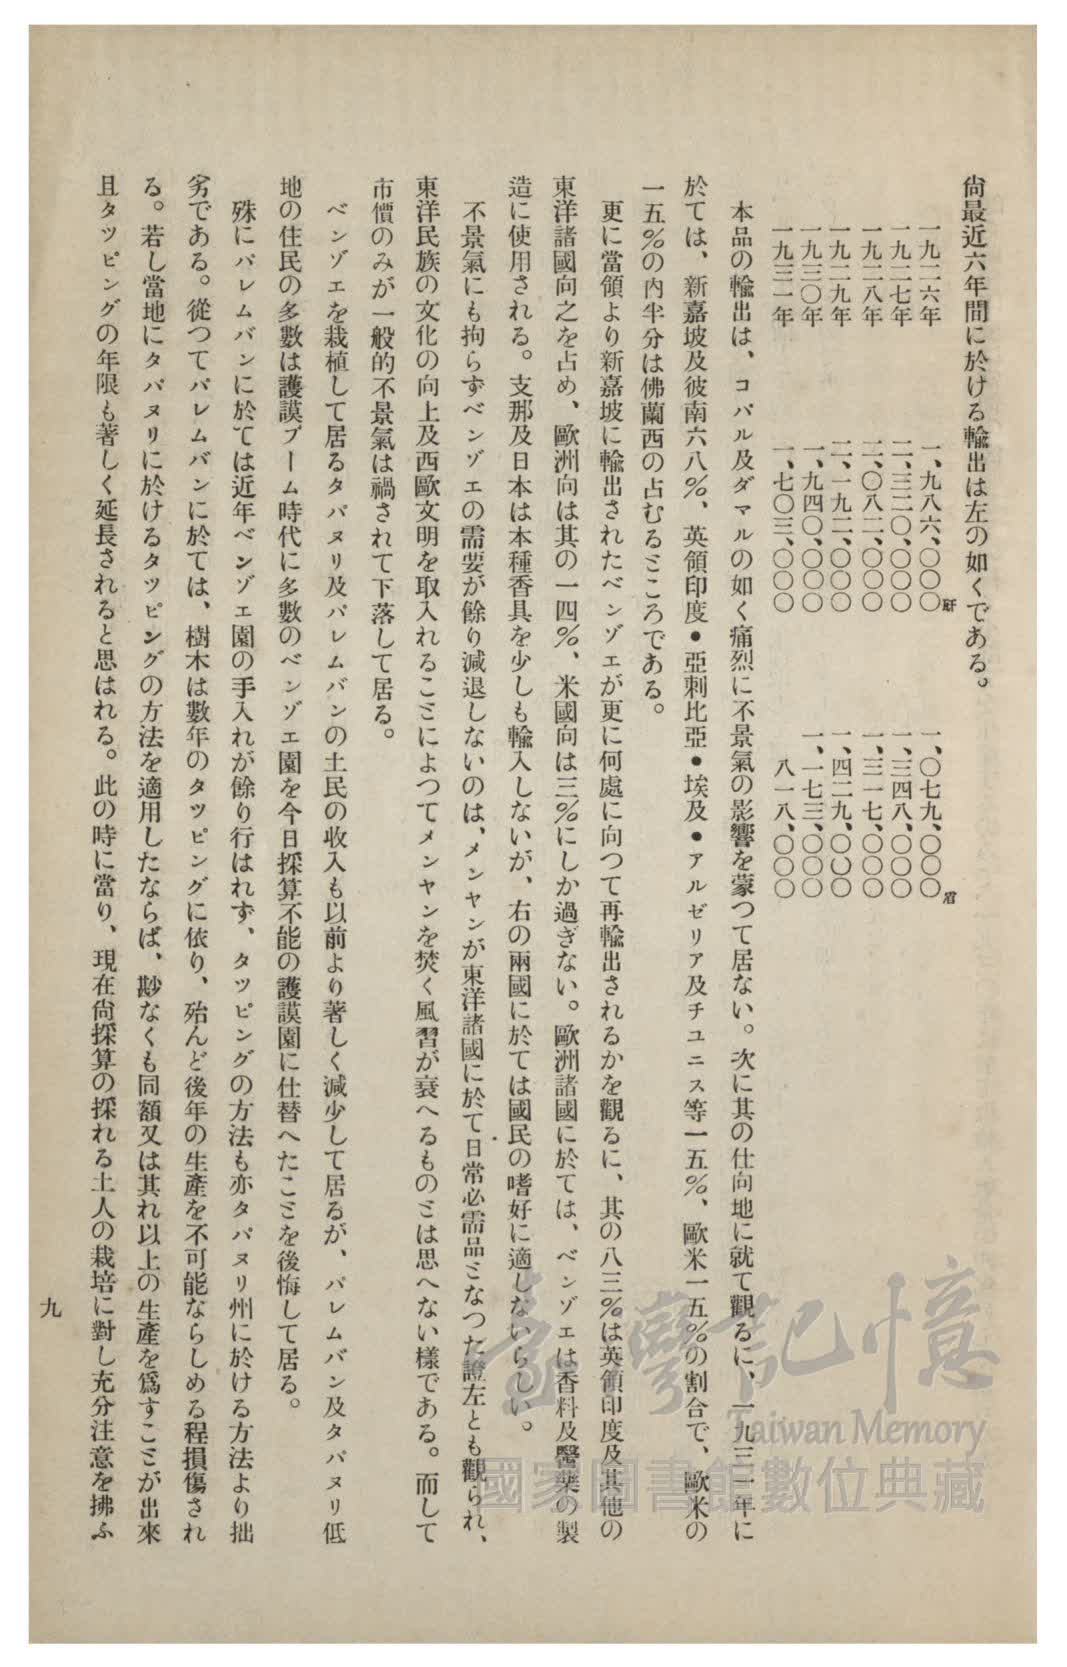 尙最近六年間に於ける輸出は左の如くである。
一九二六年　一、九八六、〇〇〇瓩　一、〇七九、〇〇〇盾
一九二七年　二、三二〇、〇〇〇　一、三四八、〇〇〇
一九二八年　二、〇八二、〇〇〇　一、三一七、〇〇〇
一九二九年　二、一九二、〇〇〇　一、四二九、〇〇〇
一九三〇年　一、九四〇、〇〇〇　一、一七三、〇〇〇
一九三一年　一、七〇三、〇〇〇　八一八、〇〇〇
本品の輸出は、コパル及ダマルの如く痛烈に不景氣の影響を蒙つて居ない。次に其の仕向地に就て觀るに、一九三一年に
於ては、新嘉坡及彼南六八％、英領印度・亞刺比亞・埃及・アルゼリア及チユニス等一五％、歐米一五％の割合で、歐米の
一五％の內半分は佛蘭西の占むるところである。
更に當領より新嘉坡に輸出されたベンゾエが更に何處に向つて再輸出されるかを觀るに、其の八三％は英領印度及其他の
東洋諸國向之を占め、歐洲向は其の一四％、米國向は三％にしか過ぎない。歐洲諸國に於ては、ベンゾエは香料及醫藥の製
造に使用される。支那及日本は本種香具を少しも輸入しないが、右の兩國に於ては國民の嗜好に適しないらしい。
不景氣にも拘らずベンゾエの需要が餘り減退しないのは、メンヤンが東洋諸國に於て日常必需品となつた證左とも觀られ、
東洋民族の文化の向上及西歐文明を取入れることによつてメンヤンを焚く風習が衰へるものとは思へない樣である。而して
市價のみが一般的不景氣は禍されて下落して居る。
ベンゾエを栽植して居るタパヌリ及パレムバンの土民の收入も以前より著しく減少して居るが、パレムバン及タパヌリ低
地の住民の多數は護謨ブーム時代に多數のベンゾエ園を今日採算不能の護謨園に仕替へたことを後悔して居る。
殊にパレムバンに於ては近年ベンゾエ園の手入れが餘り行はれず、タツピングの方法も亦タパヌリ州に於ける方法より拙
劣である。從つてパレムバンに於ては、樹木は數年のタツピングに依り、殆んど後年の生產を不可能ならしめる程損傷され
る。若し當地にタパヌリに於けるタツピングの方法を適用したならば、尠なくも同額又は其れ以上の生產を爲すことが出來
且タツピングの年限も著しく延長されると思はれる。此の時に當り、現在尙採算の採れる土人の栽培に對し充分注意を拂ふ
九
臺灣記憶
Taiwan Memory
國家圖書館數位典藏